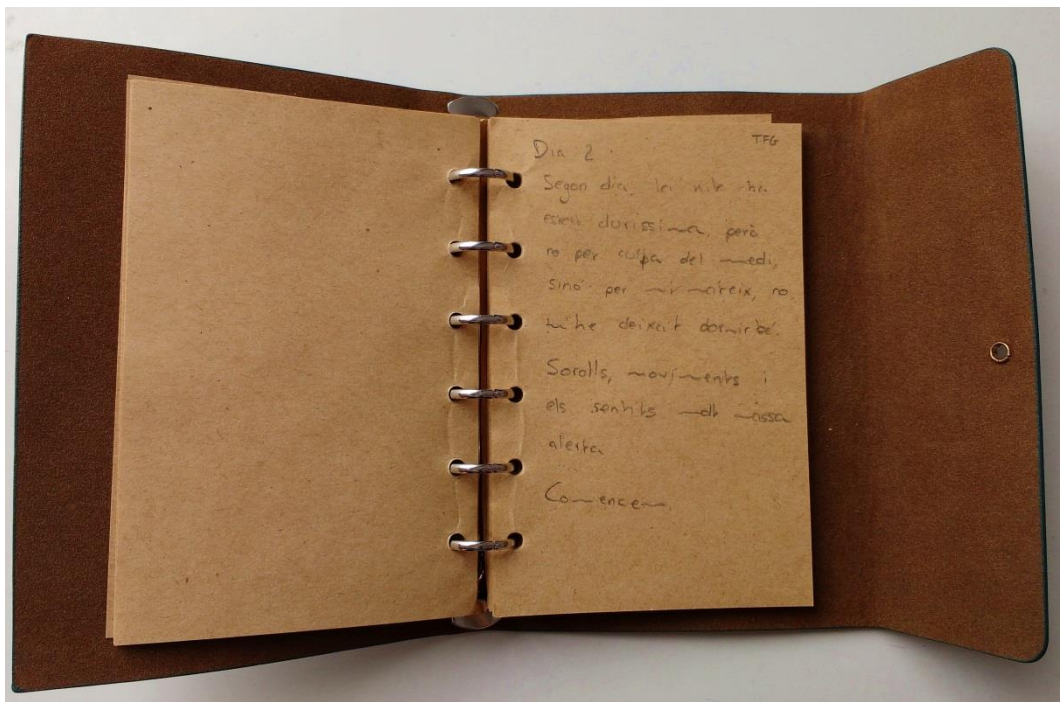 TFG
Dia 2.
Segon dia, la nit ha
estat duríssima, però
no per culpa del medi,
sinó per mi mateix, no
m'he deixat dormir bé.
Sorolls, moviments i
els sentits molt massa
alerta
Comencem.